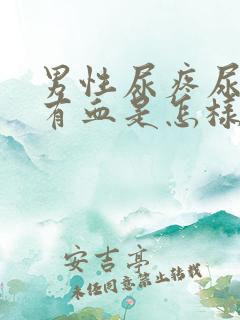 男性尿疼尿
有血是怎样
安吉亭
未经同意禁止转载